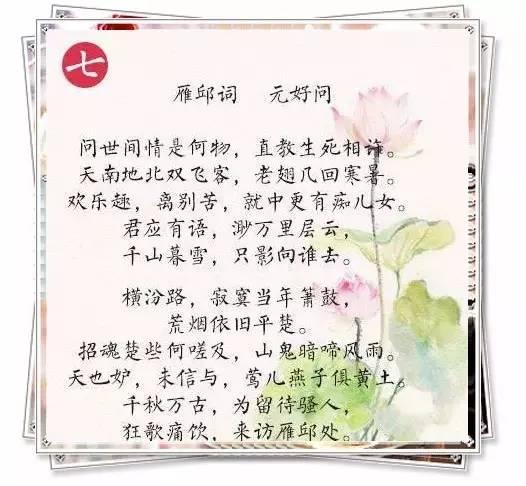 七
雁邱词 元好问
问世间情是何物，直教生死相许。
天南地北双飞客，老翅几回寒暑。
欢乐趣，离别苦，就中更有痴儿女。
君应有语，渺万里层云，
千山暮雪，只影向谁去。
横汾路，寂寞当年箫鼓，
荒烟依旧平楚。
招魂楚些何嗟及，山鬼暗啼风雨。
天也妒，未信与，莺儿燕子俱黄土。
千秋万古，为留待骚人，
狂歌痛饮，来访雁邱处。